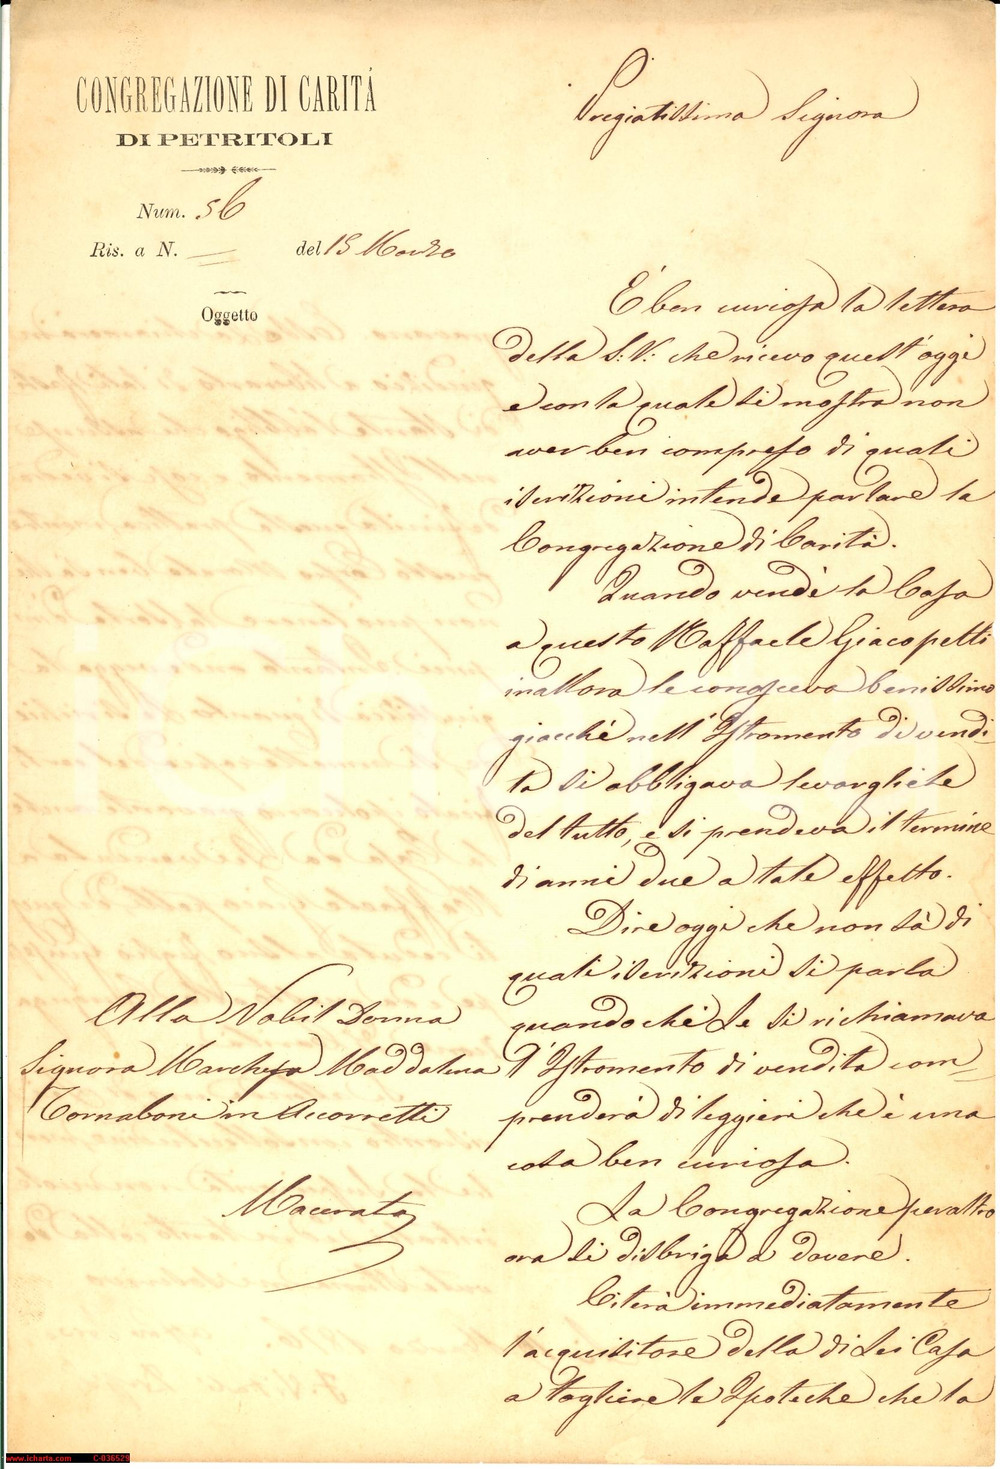 CONGREGAZIONE DI CARITÁ
DI PETRITOLI
Num. 56
Ris. a N. del 15 Marzo
Oggetto
Pregiatissima Signora
É ben curiosa la lettera
della S: V: che ricevo quest'oggi
e con la quale si mostra non
aver ben compreso di quali
iscrizioni intende parlare la
Congregazione di Carità.
Quando vendè la Casa
a questo Raffaele Giacopetti
inallora le conosceva benissimo
giacchè nell'Istromento di vendi-
ta si obbligava levargliele
del tutto, e si prendeva il termine
di anni due a tale effetto.
Dire oggi che non sà di
quali iscrizioni si parla
quando chè Le si richiamava
l'Istromento di vendita com-
prenderà di leggieri che è una
cosa ben curiosa.
La Congregazione peraltro
ora si disbriga a dovere.
Citerà immediatamente
l'acquisitore della di Lei Casa
a togliere le Ipoteche che la
Alla Nobil Donna
Signora Marchesa Maddalena
Tornaboni in Accorretti
Macerata
www.icharta.com C-036529